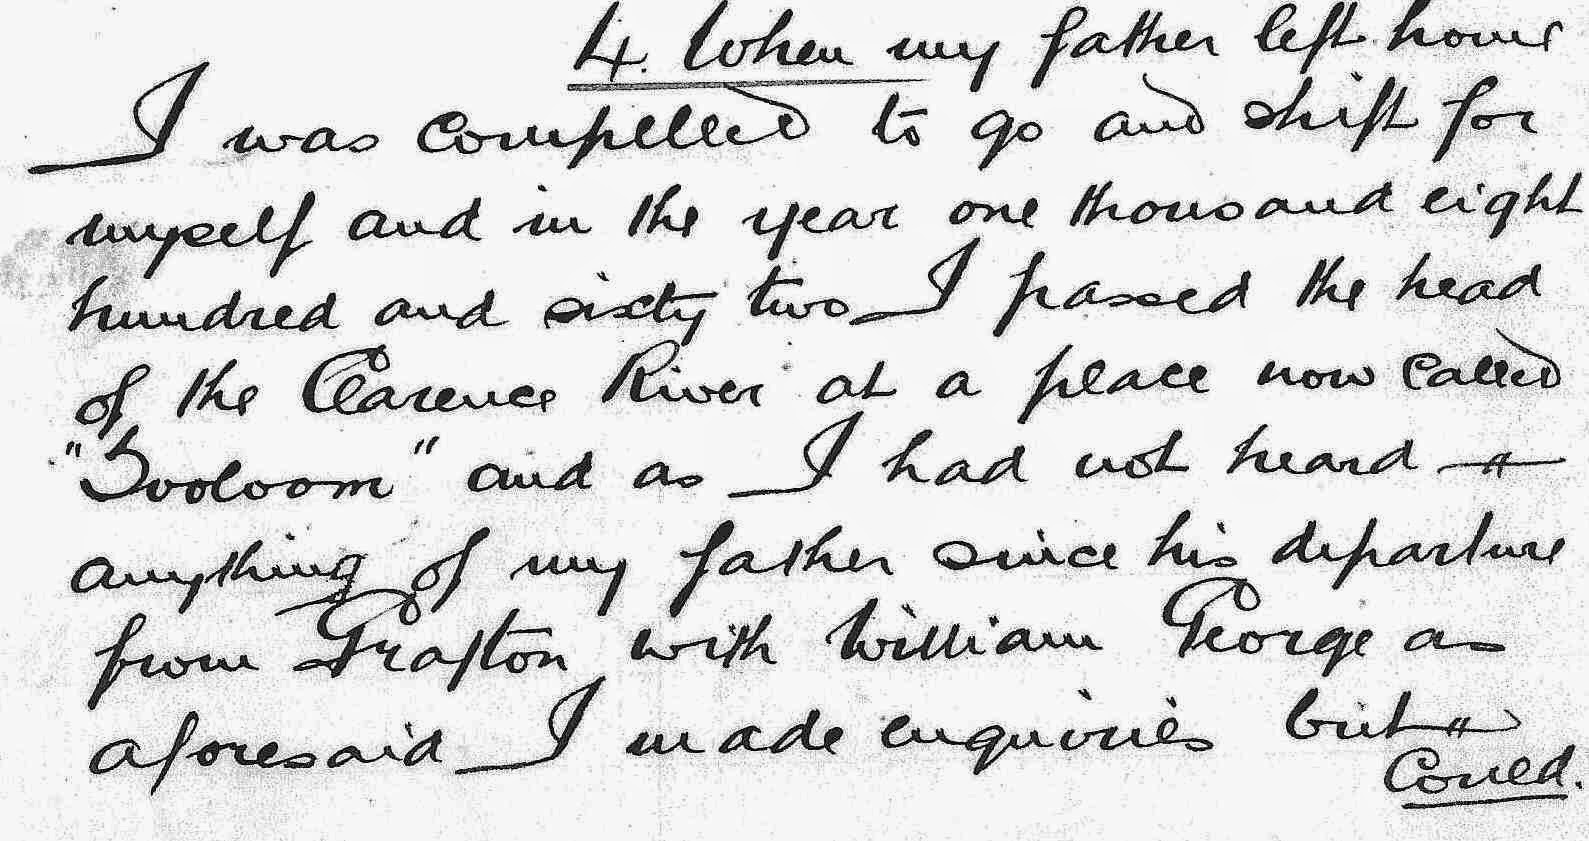 4. When my father left home
I was compelled to go and shift for
myself and in the year one thousand eight
hundred and sixty two I passed the head
of the Clarence River at a place now called
"Tooloom" and as I had not heard
anything of my father since his departure
from Grafton with William George as
aforesaid I made enquiries but
Could.